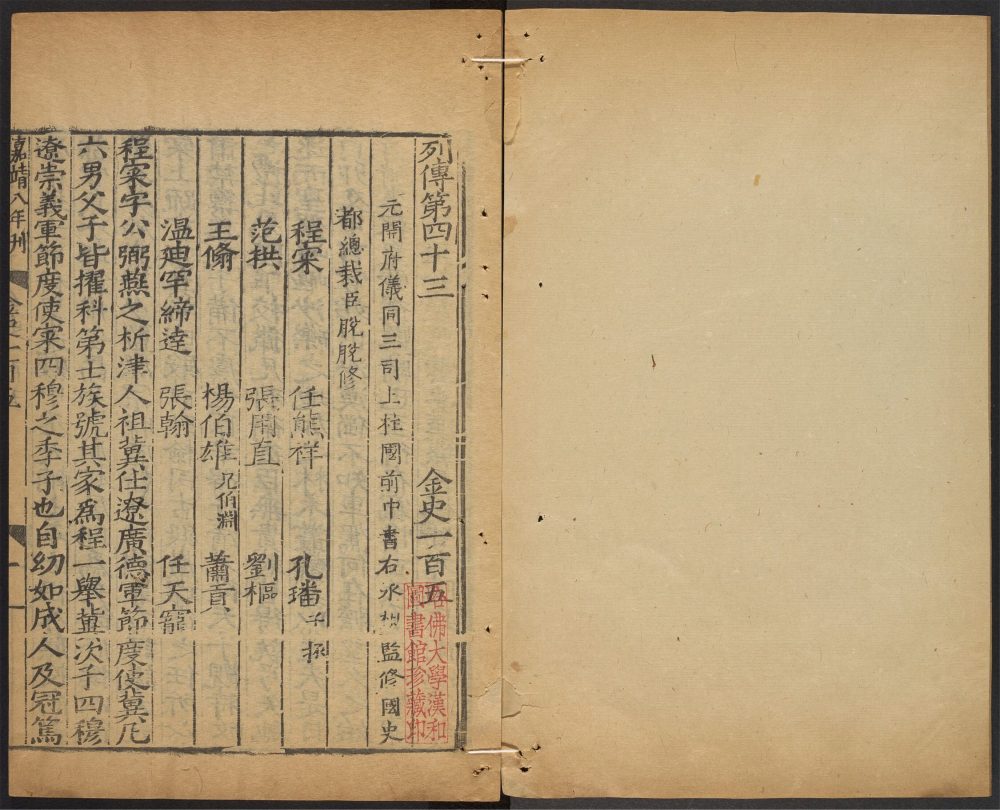 列傳第四十三　金史一百五
元開府儀同三司上柱國前中書右丞相監修國史
都總裁臣脫脫修
程寀　任熊祥　孔璠子拯
范拱　張用直　劉樞
王翛　楊伯雄兄伯淵　蕭貢
溫迪罕締達　張翰　任天寵
程寀字公弼燕之析津人祖冀仕遼廣德軍節度使冀凡
六男父子皆擢科第士族號其家爲程一舉冀次子四穆
遼崇義軍節度使寀四穆之季子也自幼如成人及冠篤
嘉靖八年刊
一
哈佛大學漢和
圖書館珍藏印